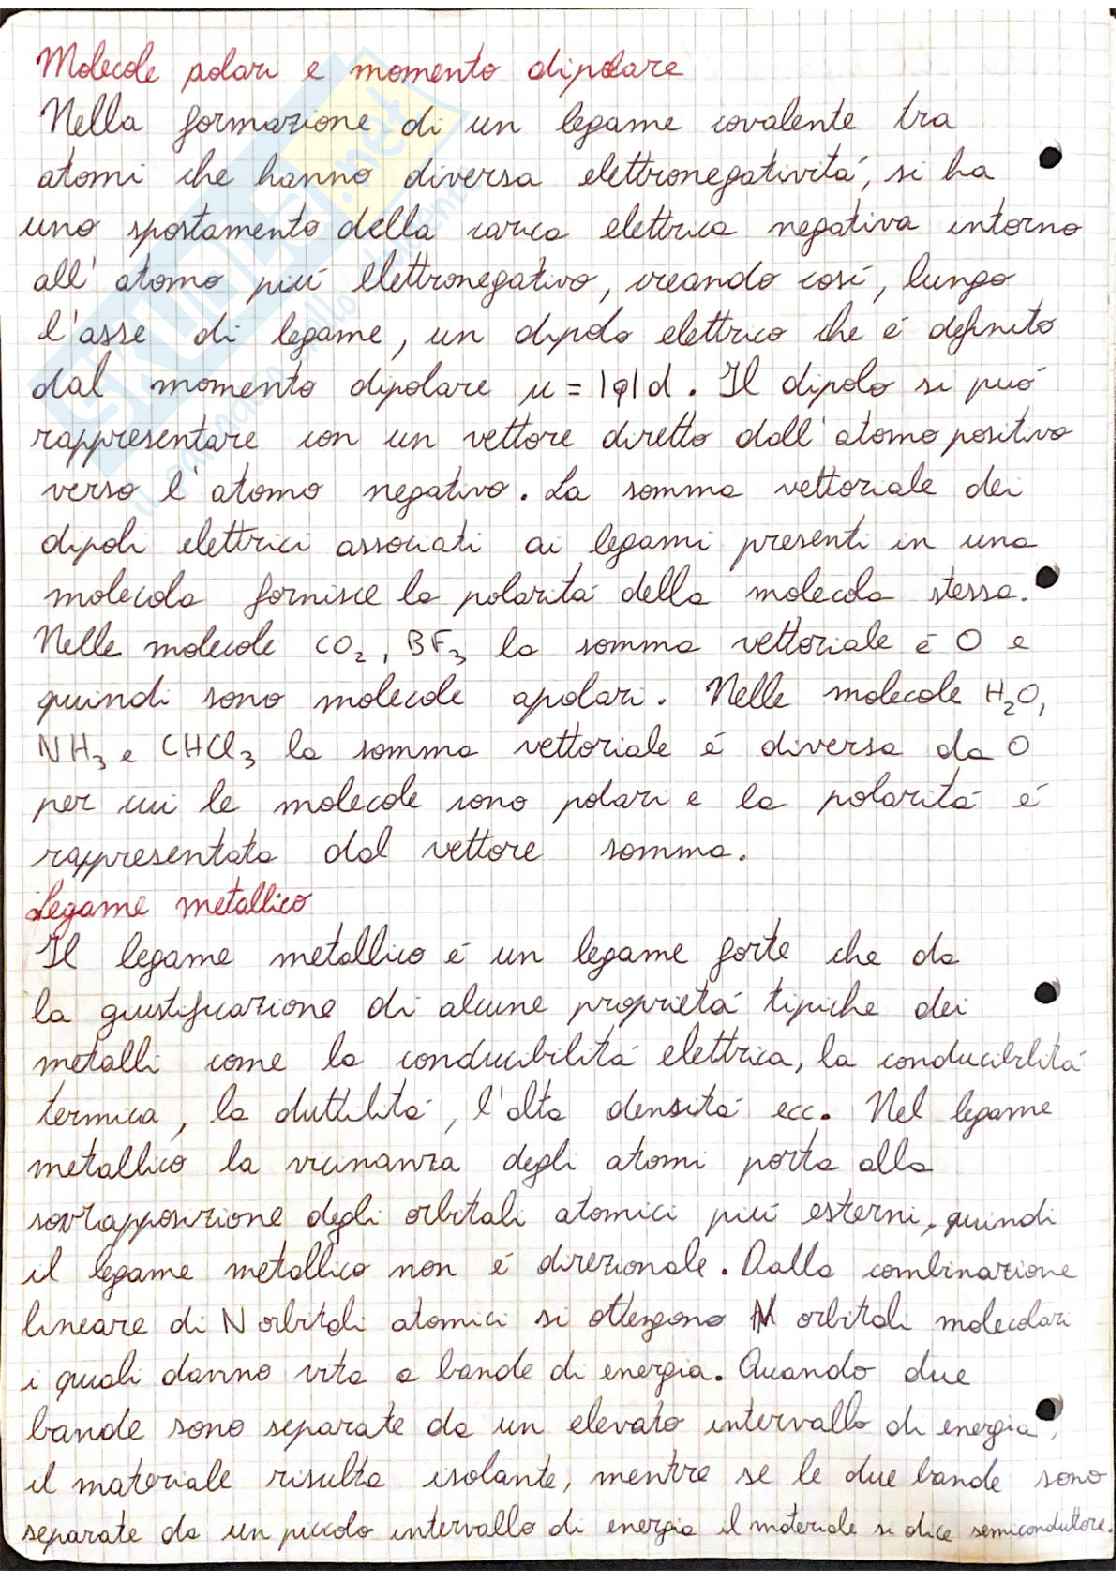 Molecole polari e momento dipolare
Nella formazione di un legame covalente tra
atomi che hanno diversa elettronegatività, si ha
uno spostamento della carica elettrica negativa intorno
all'atomo più elettronegativo, creando così, lungo
l'asse di legame, un dipolo elettrico che è definito
dal momento dipolare μ = |q|d. Il dipolo si può
rappresentare con un vettore diretto dall'atomo positivo
verso l'atomo negativo. La somma vettoriale dei
dipoli elettrici associati ai legami presenti in una
molecola fornisce la polarità della molecola stessa.
Nelle molecole CO₂, BF₃ la somma vettoriale è 0 e
quindi sono molecole apolari. Nelle molecole H₂O,
NH₃ e CHCl₃ la somma vettoriale è diversa da 0
per cui le molecole sono polari e la polarità è
rappresentata dal vettore somma.
Legame metallico
Il legame metallico è un legame forte che da
la giustificazione di alcune proprietà tipiche dei
metalli come la conducibilità elettrica, la conducibilità
termica, la duttilità, l'alta densità ecc. Nel legame
metallico la vicinanza degli atomi porta alla
sovrapposizione degli orbitali atomici più esterni, quindi
il legame metallico non è direzionale. Dalla combinazione
lineare di N orbitali atomici si ottengono N orbitali molecolari
i quali danno vita a bande di energia. Quando due
bande sono separate da un elevato intervallo di energia,
il materiale risulta isolante, mentre se le due bande sono
separate da un piccolo intervallo di energia il materiale si dice semiconduttore.
SKUOLA.net